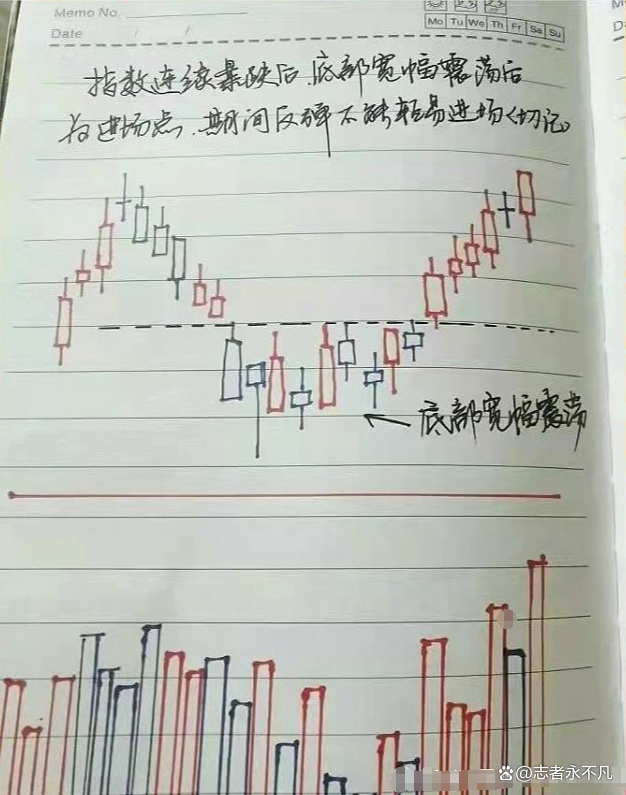 Memo No.
Mo Tu We Th Fr Sa Su
Date / /
指数连续暴跌后,底部宽幅震荡后
为进场点,期间反弹不能轻易进场(切记)
底部宽幅震荡
@志者永不凡